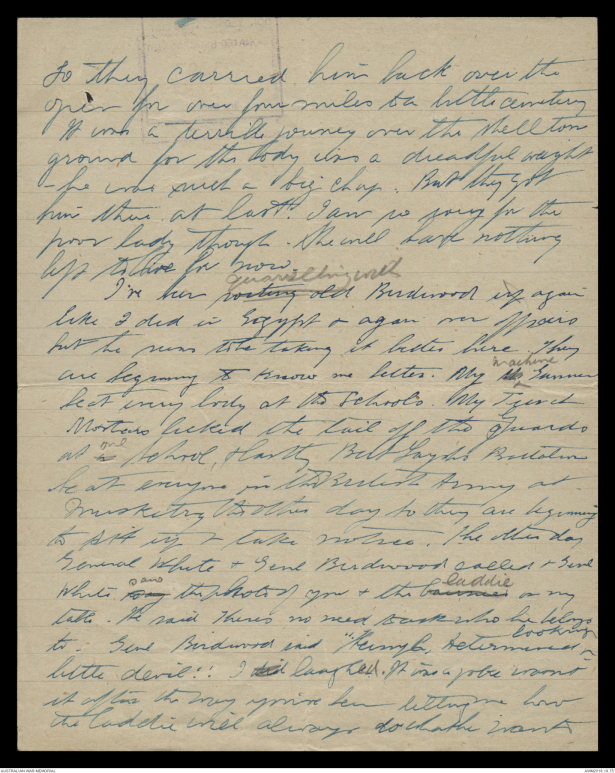 So they carried him back over the
open for over four miles to a little cemetery
It was a terrible journey over the shell torn
ground for the body was a dreadful weight
- he was such a big chap. But they got
him there at last. I am so sorry for the
poor lady though. She will have nothing
left to live for now.
quarrelling with
I've been old Birdwood again
like I did in Egypt & again over affairs
but he seems to be taking it better here. They
machine
are beginning to know me better. My Gunners
beat every body at the Schools. My Trench
Mortars licked the tail off the Guards
at School, & lastly Battalion
beat everyone in the British Army at
Musketry the other day so they are beginning
to sit up & take notice. The other day
General White & Genl Birdwood called & Genl
saw laddie
White the photo of you & the on my
table. He said there's no need to ask who he belongs
looking
to. Genl Birdwood said "Hungh, determined
little devil"!! I laughed. It was a joke wasn't
it after the way you've been telling me how
the laddie will always do what he wants